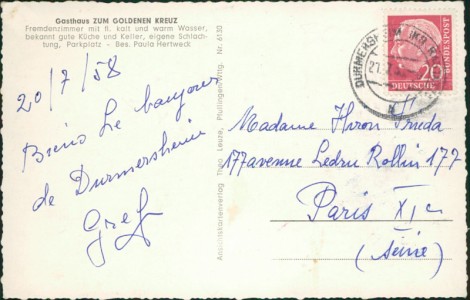 Gasthaus ZUM GOLDENEN KREUZ
Fremdenzimmer mit fl. kalt und warm Wasser,
bekannt gute Küche und Keller, eigene Schlach-
tung, Parkplatz - Bes. Paula Hertweck
20/7/58
Bien Le bonjour
de Durmersheim
Gref
Ansichtskartenverlag Theo Leuze, Pfullingen-Wttg. Nr. 6130
DURMERSHEIM
20
DEUTSCHE
BUNDESPOST
Madame Hiron Frieda
177 avenue Ledru Rollin 177
Paris XI e
(Seine)